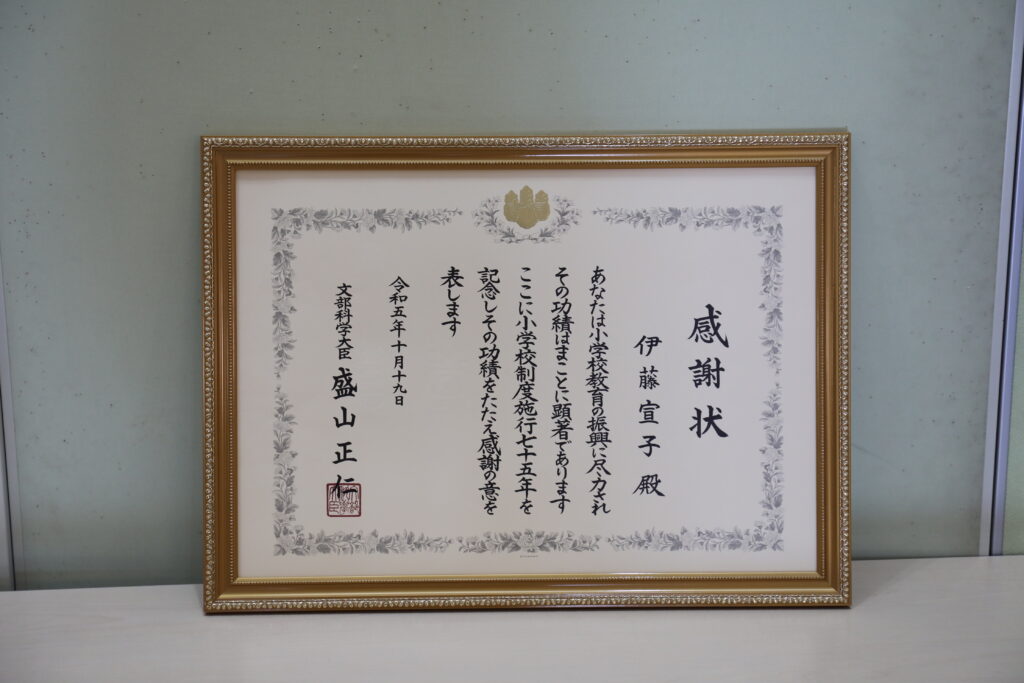 感謝状
伊藤宣子殿
あなたは小学校教育の振興に尽力され
その功績はまことに顕著であります
ここに小学校制度施行七十五年を
記念しその功績をたたえ感謝の意を
表します
令和五年十月十九日
文部科学大臣 盛山正仁